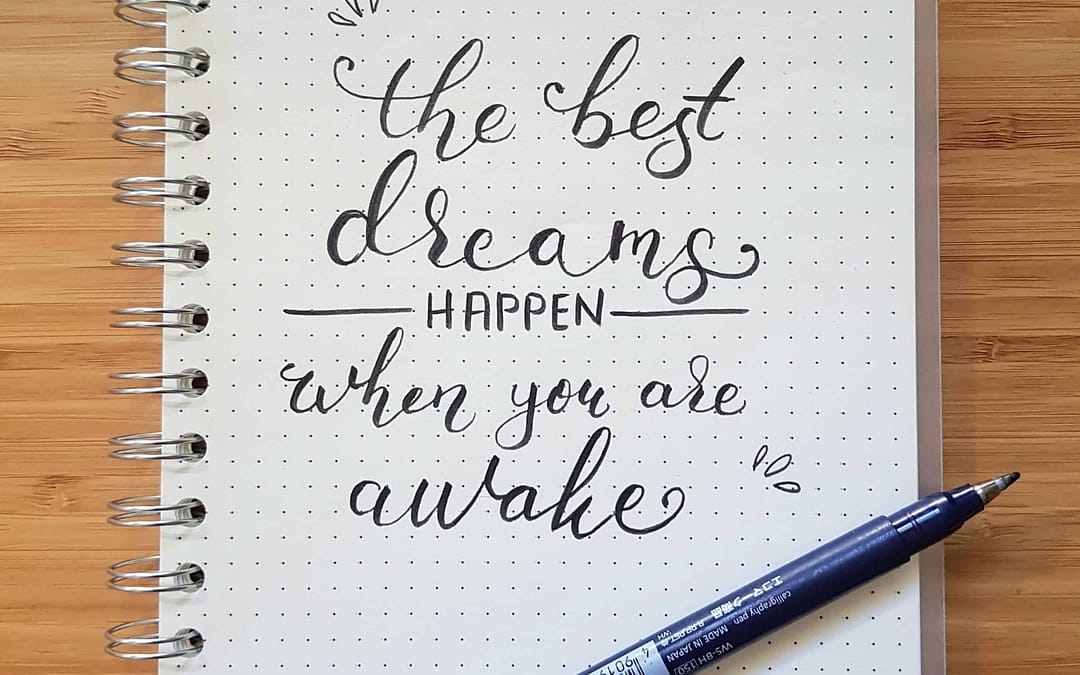 the best
dreams
HAPPEN
when you are
awake
エコマーク商品
calligraphy pen
MADE IN JAPAN
WS-BH (150)